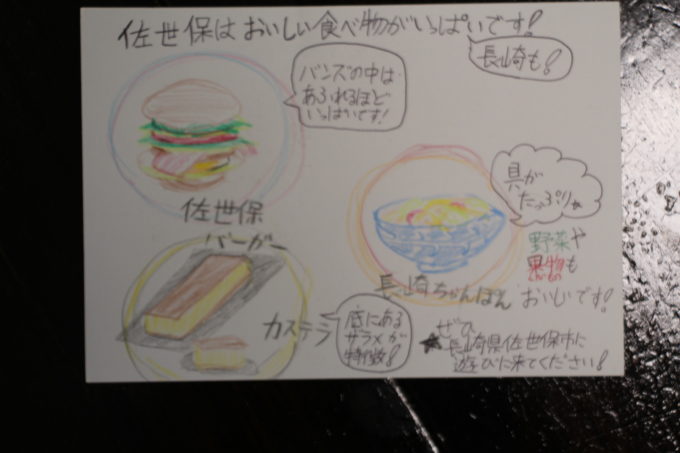 佐世保はおいしい食べ物がいっぱいです!
長崎も!
バンズの中は
あふれるほど
いっぱいです!
佐世保
バーガー
具が
たっぷり
野菜や
果物も
おいしいです!
長崎ちゃんぽん
カステラ
底にある
ザラメが
特徴!
★ぜひ
長崎県佐世保市に
遊びに来てください!